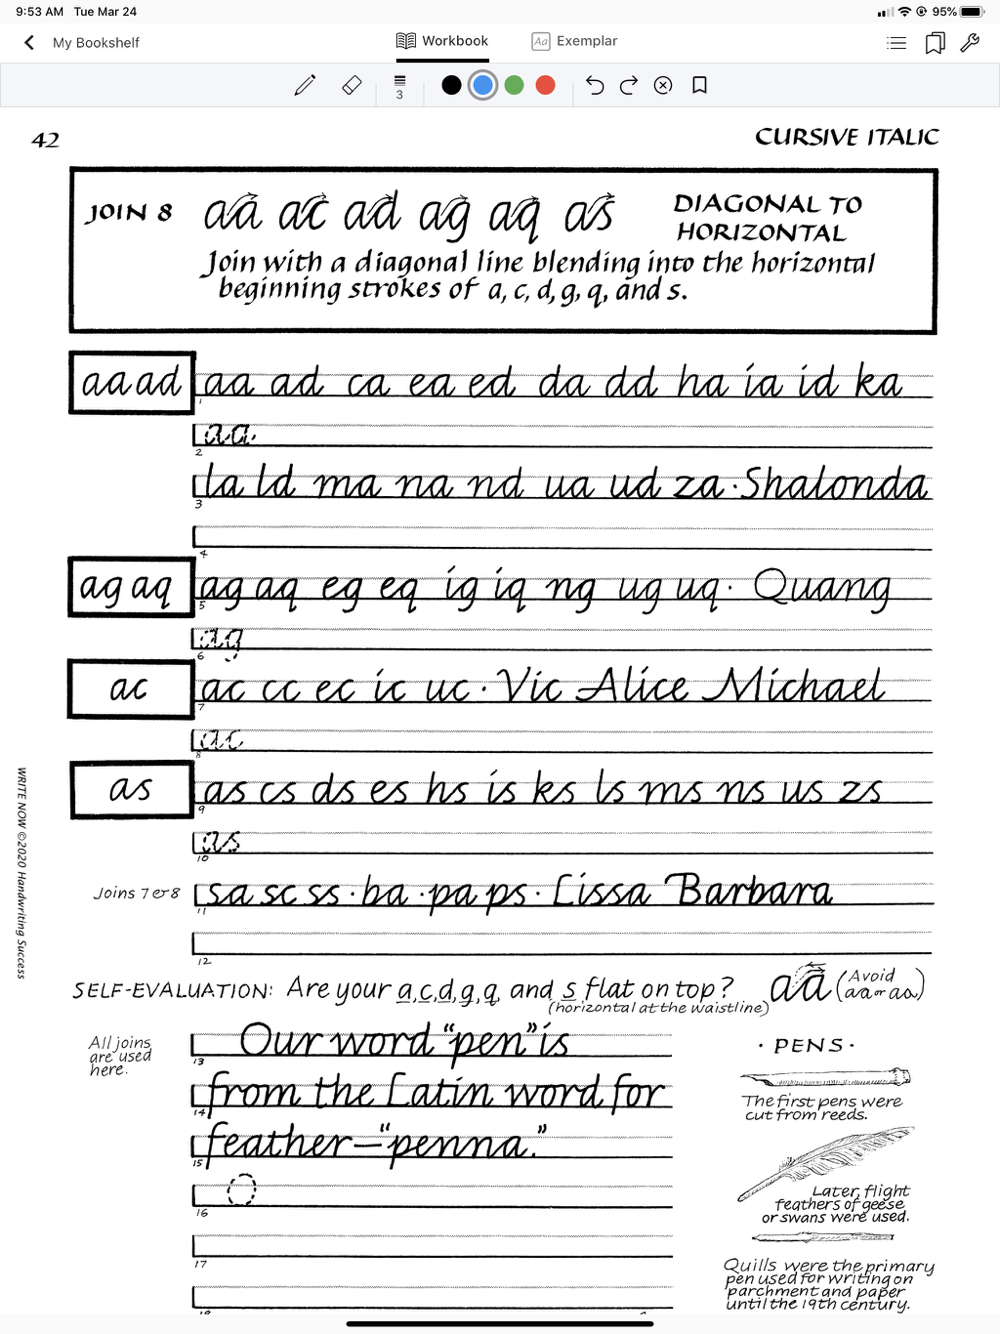 9:53 AM Tue Mar 24 95%
My Bookshelf Workbook Aa Exemplar
3
42 CURSIVE ITALIC
JOIN 8 aa ac ad ag aq as DIAGONAL TO
HORIZONTAL
Join with a diagonal line blending into the horizontal
beginning strokes of a, c, d, g, q, and s.
aa ad aa ad ca ea ed da dd ha ia id ka
1
aa.
2
la ld ma na nd ua ud za · Shalonda
3
4
ag aq ag aq eg eq ig iq ng ug uq · Quang
5
ag
6
ac ac cc ec ic uc · Vic Alice Michael
7
ac
8
as as cs ds es hs is ks ls ms ns us zs
9
as
10
Joins 7 & 8 sa sc ss · ba · pa ps · Lissa Barbara
11
12
SELF-EVALUATION: Are your a, c, d, g, q, and s flat on top? aa (Avoid
(horizontal at the waistline) aa or aa.)
All joins
are used
here.
Our word "pen" is
13
from the Latin word for
14
feather—"penna."
15
O
16
17
18
· PENS ·
The first pens were
cut from reeds.
Later, flight
feathers of geese
or swans were used.
Quills were the primary
pen used for writing on
parchment and paper
until the 19th century.
WRITE NOW ©2020 Handwriting Success